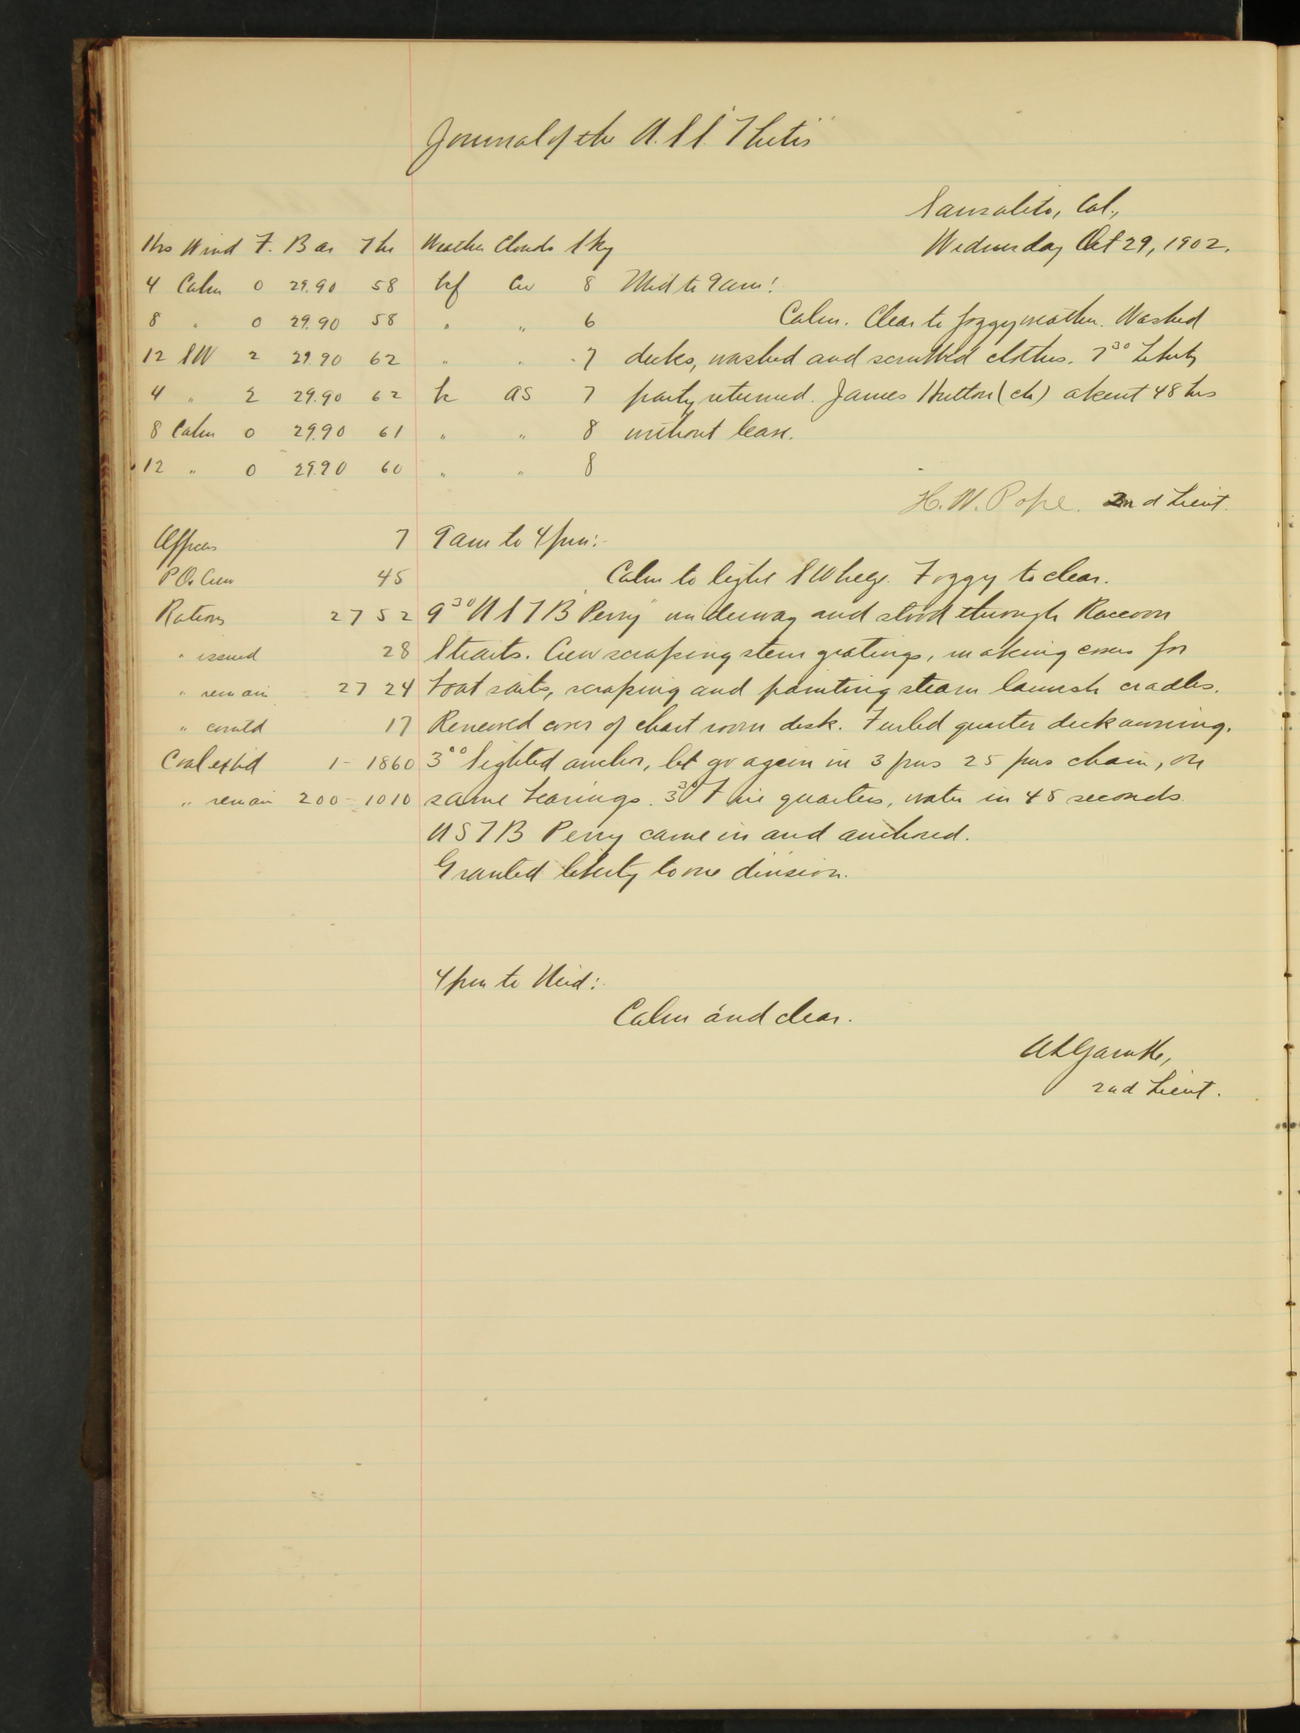 Journal of the U.S.S. "Thetis"
Sausalito, Cal.,
Hrs Wind F. Bar Thr Weather Clouds Sky Wednesday Oct 29, 1902.
4 Calm 0 29.90 58 bf Cu 8 Mid to 9 am:
8 " 0 29.90 58 " " 6 Calm. Clear to foggy weather. Washed
12 SW 2 29.90 62 " " 7 decks, washed and scrubbed clothes. 7³⁰ Liberty
4 " 2 29.90 62 b as 7 party returned. James Hutton (ch) absent 48 hrs
8 Calm 0 29.90 61 " " 8 without leave.
12 " 0 29.90 60 " " 8
H. W. Pope. 2nd Lieut.
Officers 7 9 am to 4 pm:-
P.O. Crew 45 Calm to light SW brgs. Foggy to clear.
Rations 2752 9³⁰ U S T B "Perry" underway and stood through Raccoon
" issued 28 Straits. Crew scraping stern gratings, making covers for
" remain 2724 boat sails, scraping and painting steam launch cradles.
" comtd 17 Renewed cover of chart room desk. Furled quarter deck awning.
Coal expd 1 - 1860 3⁰⁰ Sighted anchor, let go again in 3 fms 25 fms chain, on
" remain 200 - 1010 same bearings. 3³⁰ Fire quarters, water in 45 seconds.
U S T B Perry came in and anchored.
Granted liberty to one division.
4 pm to Mid:
Calm and clear.
2nd Lieut.